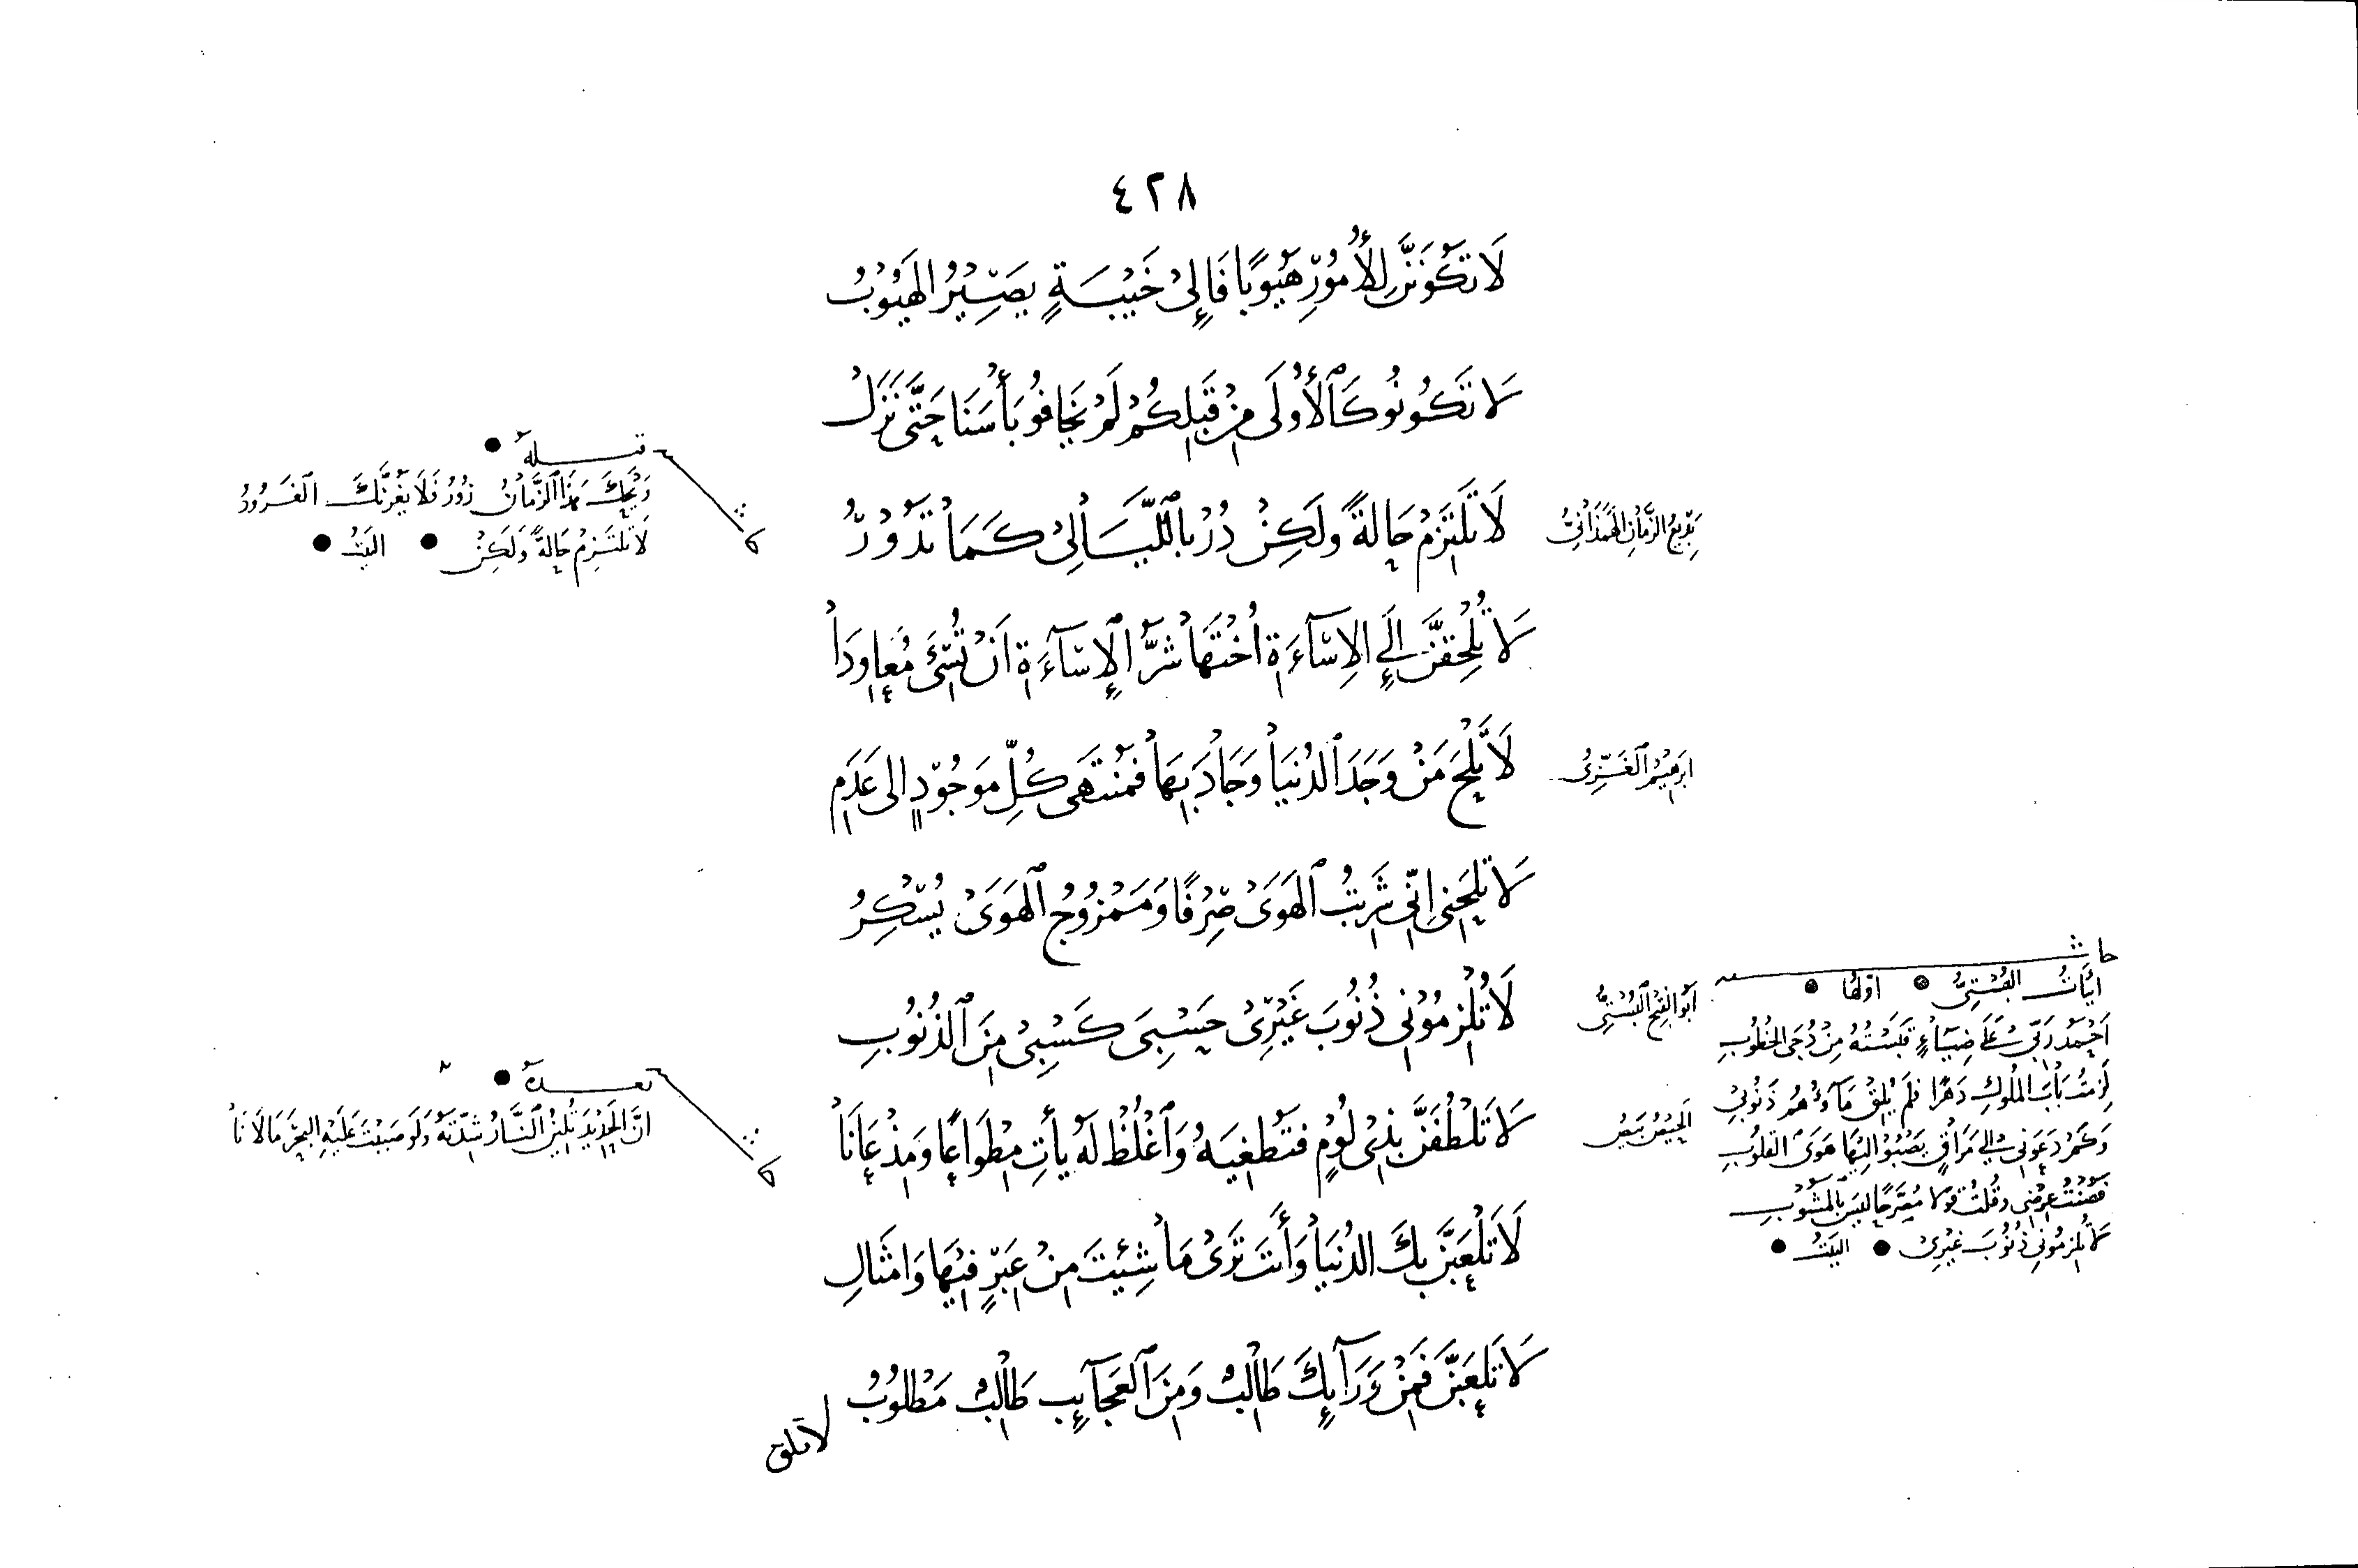 ٤٢٨
لَا تَكُونَنَّ لِلأُمُورِ هَيُوبًا فَإِلَى خَيْبَةٍ يَصِيْرُ الهَيُوبُ
لَا تَكُونُوا كَالأُولَى مِنْ قَبْلِكُمْ لَمْ يَخَافُوا بَأْسَنَا حَتَّى نَزَلْ
بَدِيعُ الزَّمَانِ الهَمَذَانِيُّ
لَا تَلْتَزِمْ حَالَةً وَلَكِنْ دُرْ بِاللَّيَالِي كَمَا تَدُورُ
قبله
وَيْحَكَ هَذَا الزَّمَانُ زُورُ فَلَا يَغُرَّنَّكَ الغَرُورُ
لَا تَلْتَزِمْ حَالَةً وَلَكِنْ • البَيْتُ •
لَا تُلْحِقَنَّ إِلَى الإِسَآءَةِ أُخْتَهَا شَرُّ الإِسَآءَةِ أَنْ تُسِيْءَ مُعَاوِدَا
ابرهِيْمُ الغَزِّىُّ
لَا تَلْحَ مَنْ وَجَدَ الدُنْيَا وَجَادَ بِهَا فَمُنْتَهَى كُلِّ مَوْجُوْدٍ إلى عَدَمِ
لَا تَلْحَنِي إِنّي شَرِبْتُ الهَوَى صِرْفًا وَمَمْزُوجُ الهَوَى يُسْكِرُ
أبُو الفَتْحِ البُسْتِيُّ
لَا تُلْزِمُوْنِي ذُنُوبَ غَيْرِيْ حَسْبِيَ كَسْبِيْ مِنَ الذُنُوبِ
حاشية
ابْيَاتُ البُسْتِيِّ • أوّلها •
أَحْمَدُ رَبِّي عَلَى ضِيَاءٍ قَبَسْتُهُ مِنْ دُجَى الخُطُوبِ
لَزِمْتُ بَابَ المُلُوكِ دَهْرًا فلَم يُلْقَ مَآؤُهُمْ ذَنُوبِيْ
وَكَمْ دَعَونِي إِلى مَرَاقٍ يَصْبُو إِلَيْهَا هَوَى القلُوبِ
فَصُنْتُ عِرْضِي وقُلتُ قَوْلا مُصَرِّحًا لَيْسَ بِالمَشُوْبِ
لَا تُلزِمُونِي ذُنُوبَ غَيْرِيْ • البَيْتُ •
الحَيْصُ بَيْصُ
لَا تَلْطُفَنَّ بِذِي لُومٍ فَتُطْغِيَهُ وَاغْلُظْ لَهُ يَأْتِ مِطْوَاعًا وَمِذْعَانَا
بعده
انَّ الحَدِيْدَ تُلِينُ النَّارُ شِدّتَهُ وَلَو صَبَبْتَ عَلَيْهِ البَحْرَ مَا لَانَا
لَا تَلْعَبَنَّ بِكَ الدُنْيَا وَأَنتَ تَرَى مَا شِئْتَ مِنْ عِبَرٍ فِيْهَا وَامْثَالِ
لَا تَلْعَبَنَّ فَمِنْ وَرَآئِكَ طَالِبٌ وَمِنَ العَجَآئِبِ طَالِبٌ مَطْلُوبُ
لا تلق